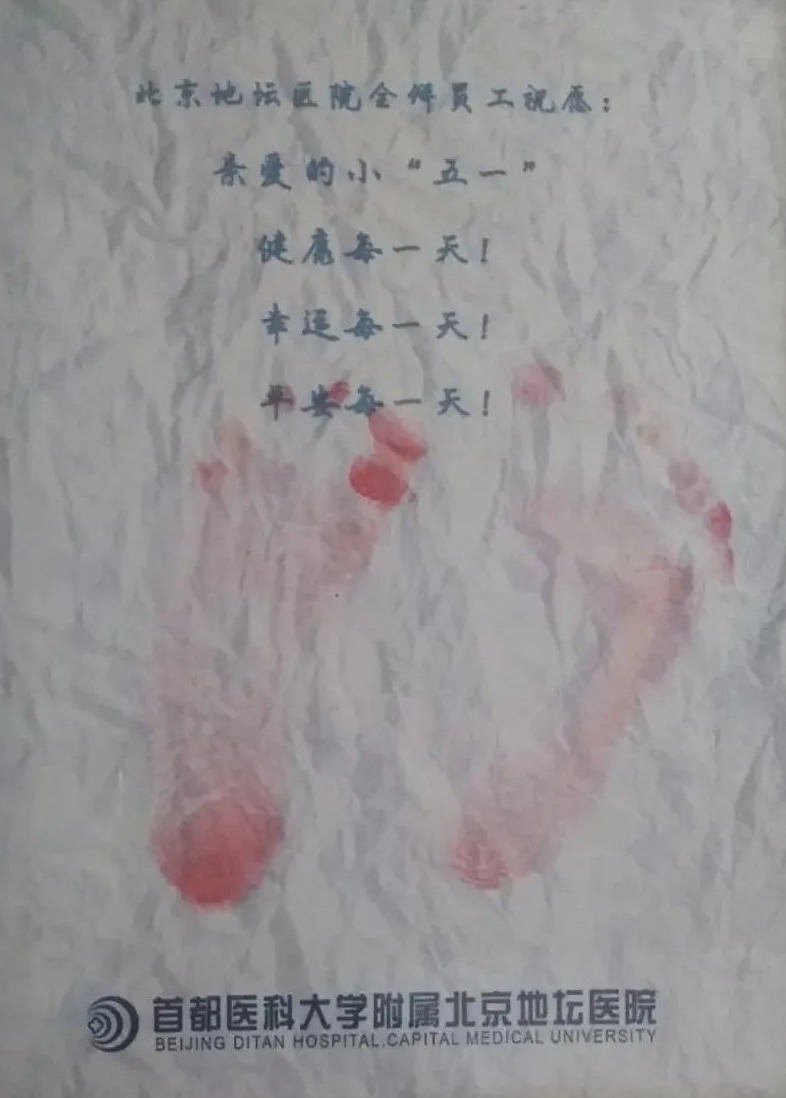 北京地坛医院全体员工祝愿：
亲爱的小“五一”
健康每一天！
幸运每一天！
平安每一天！
首都医科大学附属北京地坛医院
BEIJING DITAN HOSPITAL.CAPITAL MEDICAL UNIVERSITY